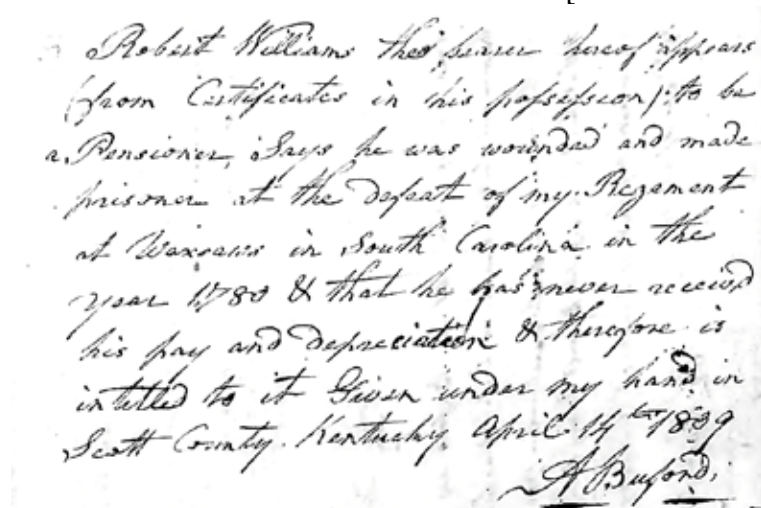 Robert Williams the bearer hereof appears
(from Certificates in his possession) to be
a Pensioner, Says he was wounded and made
prisoner at the defeat of my Regement
at Waxsaws in South Carolina in the
year 1780 & that he has never received
his pay and depreciation & therefore is
intitled to it Given under my hand in
Scott County. Kentucky April 14th 1809
A Buford